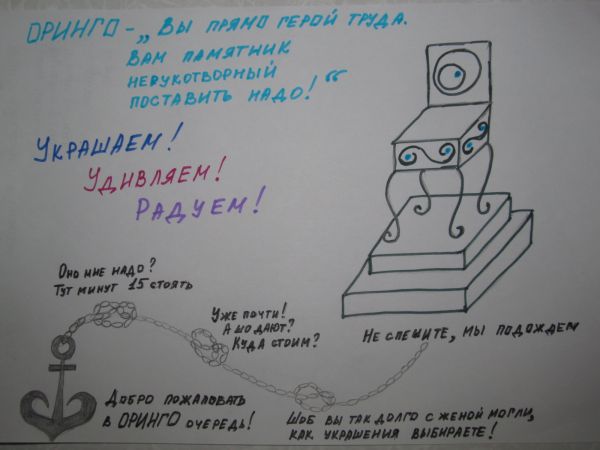 ОРИНГО - „Вы прямо герой труда.
Вам памятник
нерукотворный
поставить надо!“
Украшаем!
Удивляем!
Радуем!
Оно мне надо?
Тут минут 15 стоять
Уже почти!
А шо дают?
Куда стоим?
Не спешите, мы подождем
Добро пожаловать
в ОРИНГО очередь!
Шоб вы так долго с женой могли,
как украшения выбираете!